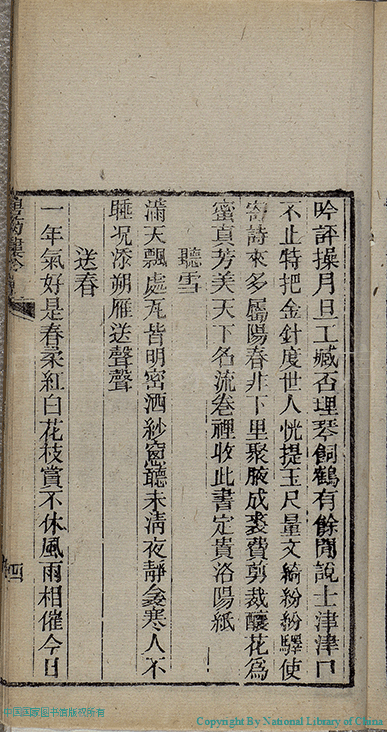 吟評操月旦工臧否理琴飼鶴有餘閒說士津津口
不止特把金針度世人恍提玉尺量文綺紛紛驛使
寄詩來多屬陽春非下里聚腋成裘費剪裁釀花為
蜜真芳美天下名流卷裡收此書定貴洛陽紙
聽雪
滿天飄處瓦皆明密洒紗窗聽未清夜靜衾寒人不
睡况添朔雁送聲聲
送春
一年氣好是春柔紅白花枝賞不休風雨相催今日
四
中国国家图书馆版权所有
Copyright By National Library of China